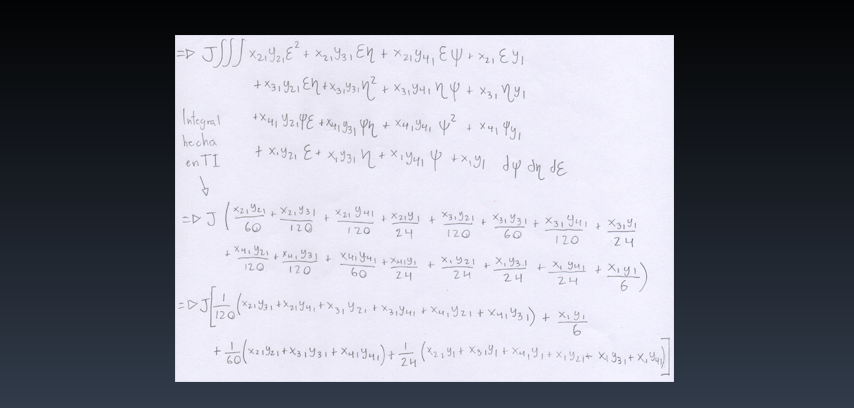 => J∭ x₂₁y₂₁ε² + x₂₁y₃₁εη + x₂₁y₄₁εψ + x₂₁εy₁
+x₃₁y₂₁εη+x₃₁y₃₁η² + x₃₁y₄₁ηψ + x₃₁ηy₁
+x₄₁y₂₁ψε+x₄₁y₃₁ψη + x₄₁y₄₁ψ² + x₄₁ψy₁
+ x₁y₂₁ε + x₁y₃₁η + x₁y₄₁ψ + x₁y₁ dψ dη dε
Integral
hecha
en TI
=> J (x₂₁y₂₁/60 + x₂₁y₃₁/120 + x₂₁y₄₁/120 + x₂₁y₁/24 + x₃₁y₂₁/120 + x₃₁y₃₁/60 + x₃₁y₄₁/120 + x₃₁y₁/24
+ x₄₁y₂₁/120 + x₄₁y₃₁/120 + x₄₁y₄₁/60 + x₄₁y₁/24 + x₁y₂₁/24 + x₁y₃₁/24 + x₁y₄₁/24 + x₁y₁/6)
=> J[1/120 (x₂₁y₃₁+x₂₁y₄₁+x₃₁y₂₁+x₃₁y₄₁+x₄₁y₂₁+x₄₁y₃₁) + x₁y₁/6
+ 1/60 (x₂₁y₂₁+x₃₁y₃₁+x₄₁y₄₁) + 1/24 (x₂₁y₁+x₃₁y₁+x₄₁y₁+x₁y₂₁+x₁y₃₁+x₁y₄₁)]